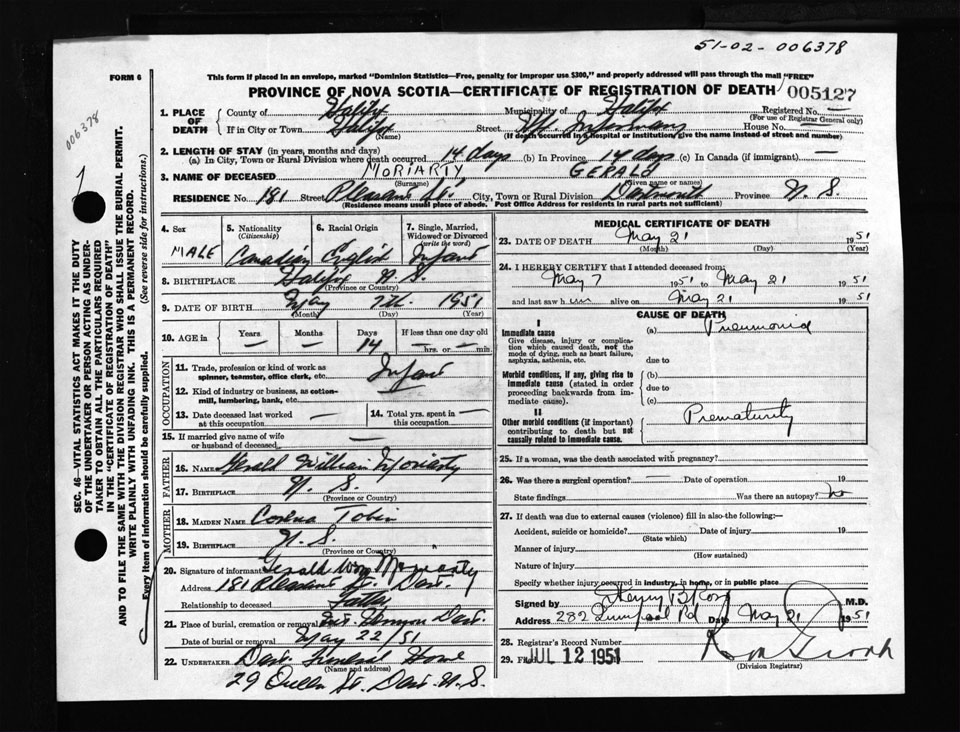 51-02-006378
006378
FORM 6
This form if placed in an envelope, marked "Dominion Statistics—Free, penalty for improper use $300," and properly addressed will pass through the mail "FREE"
PROVINCE OF NOVA SCOTIA—CERTIFICATE OF REGISTRATION OF DEATH 005127
1. PLACE OF DEATH County of Halifax Municipality of Halifax Registered No. —
(For use of Registrar General only)
If in City or Town Halifax Street House No. —
(Name) (If death occurred in a hospital or institution, give the name instead of street and number)
2. LENGTH OF STAY (in years, months and days)
(a) In City, Town or Rural Division where death occurred 14 days (b) In Province 14 days (c) In Canada (if immigrant) —
3. NAME OF DECEASED MORIARTY GERALD
(Surname) (Given name or names)
RESIDENCE No. 181 Street Pleasant St. City, Town or Rural Division Dartmouth Province N. S.
(Residence means usual place of abode. Post Office Address for residents in rural parts not sufficient)
4. Sex 5. Nationality (Citizenship) 6. Racial Origin 7. Single, Married, Widowed or Divorced (write the word)
MALE Canadian English Infant
8. BIRTHPLACE Halifax N. S.
(Province or Country)
9. DATE OF BIRTH May 7th. 1951
(Month) (Day) (Year)
10. AGE in Years Months Days If less than one day old
— — 14 — hrs. or — min.
OCCUPATION
11. Trade, profession or kind of work as spinner, teamster, office clerk, etc. Infant
12. Kind of industry or business, as cotton-mill, lumbering, bank, etc.
13. Date deceased last worked at this occupation — 14. Total yrs. spent in this occupation —
15. If married give name of wife or husband of deceased —
FATHER
16. NAME Gerald William Moriarty
17. BIRTHPLACE N. S.
(Province or Country)
MOTHER
18. MAIDEN NAME Tobin
19. BIRTHPLACE N. S.
(Province or Country)
20. Signature of informant Gerald Wm Moriarty
Address 181 Pleasant St. Dart.
Relationship to deceased Father
21. Place of burial, cremation or removal Mt. Hermon Dart.
Date of burial or removal May 22/51
22. UNDERTAKER Dart. Funeral Home
(Name and address)
29 Queen St. Dart. N. S.
MEDICAL CERTIFICATE OF DEATH
23. DATE OF DEATH May 21 1951
(Month) (Day) (Year)
24. I HEREBY CERTIFY that I attended deceased from:
May 7 1951 to May 21 1951
and last saw him alive on May 21 1951
CAUSE OF DEATH
I
Immediate cause (a) Pneumonia
Give disease, injury or complication which caused death, not the mode of dying, such as heart failure, asphyxia, asthenia, etc.
due to
Morbid conditions, if any, giving rise to immediate cause (stated in order proceeding backwards from immediate cause). (b)
due to
(c)
II
Other morbid conditions (if important) contributing to death but not causally related to immediate cause. Prematurity
25. If a woman, was the death associated with pregnancy?
26. Was there a surgical operation? — Date of operation 19
State findings Was there an autopsy? no
27. If death was due to external causes (violence) fill in also the following:—
Accident, suicide or homicide? Date of injury 19
(State which)
Manner of injury
(How sustained)
Nature of injury
Specify whether injury occurred in industry, in home, or in public place
Signed by Henry B Ross M.D.
Address 282 Quinpool Rd Date May 21 1951
28. Registrar's Record Number
29. Filed JUL 12 1951
(Division Registrar)
SEC. 46—VITAL STATISTICS ACT MAKES IT THE DUTY
OF THE UNDERTAKER OR PERSON ACTING AS UNDER-
TAKER TO OBTAIN ALL THE PARTICULARS REQUIRED
IN THE "CERTIFICATE OF REGISTRATION OF DEATH"
AND TO FILE THE SAME WITH THE DIVISION REGISTRAR WHO SHALL ISSUE THE BURIAL PERMIT.
WRITE PLAINLY WITH UNFADING INK. THIS IS A PERMANENT RECORD.
Every item of information should be carefully supplied. (See reverse side for instructions.)